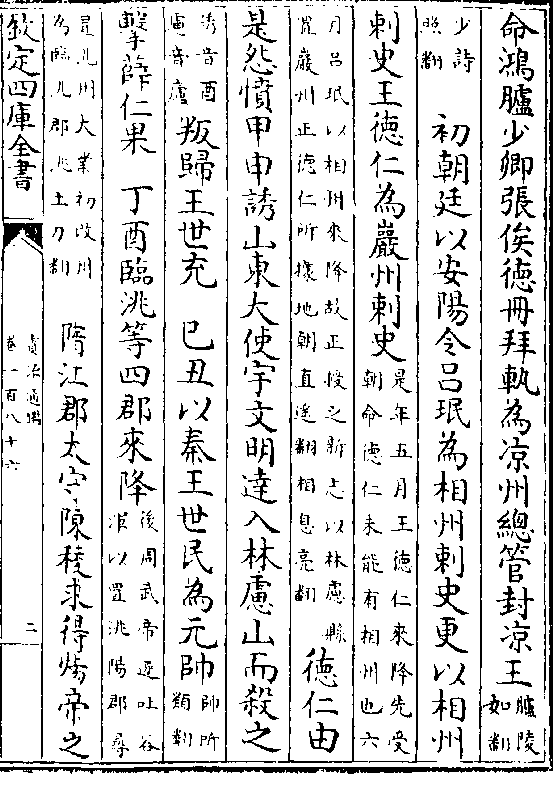 命鴻臚少卿張俟徳冊拜軌為凉州總管封凉王臚陵如翻
少詩照翻
初朝廷以安陽令吕珉為相州刺史更以相州
刺史王徳仁為巖州刺史是年五月王徳仁來降先受朝命徳仁未能有相州也六
月吕珉以相州來降故正授之新志以林慮縣置巖州正徳仁所據地朝直遥翻相息亮翻
徳仁由
是怨憤甲申誘山東大使宇文明達入林慮山而殺之
誘音酉慮音廬
叛歸王世充
己丑以秦王世民為元帥帥所類翻
擊薛仁果
丁酉臨洮等四郡來降後周武帝逐吐谷渾以置洮陽郡尋
置洮州大業初改州為臨洮郡洮土刀翻
隋江郡太守陳稜求得煬帝之
欽定四庫全書
資治通鑑
卷一百八十六
二